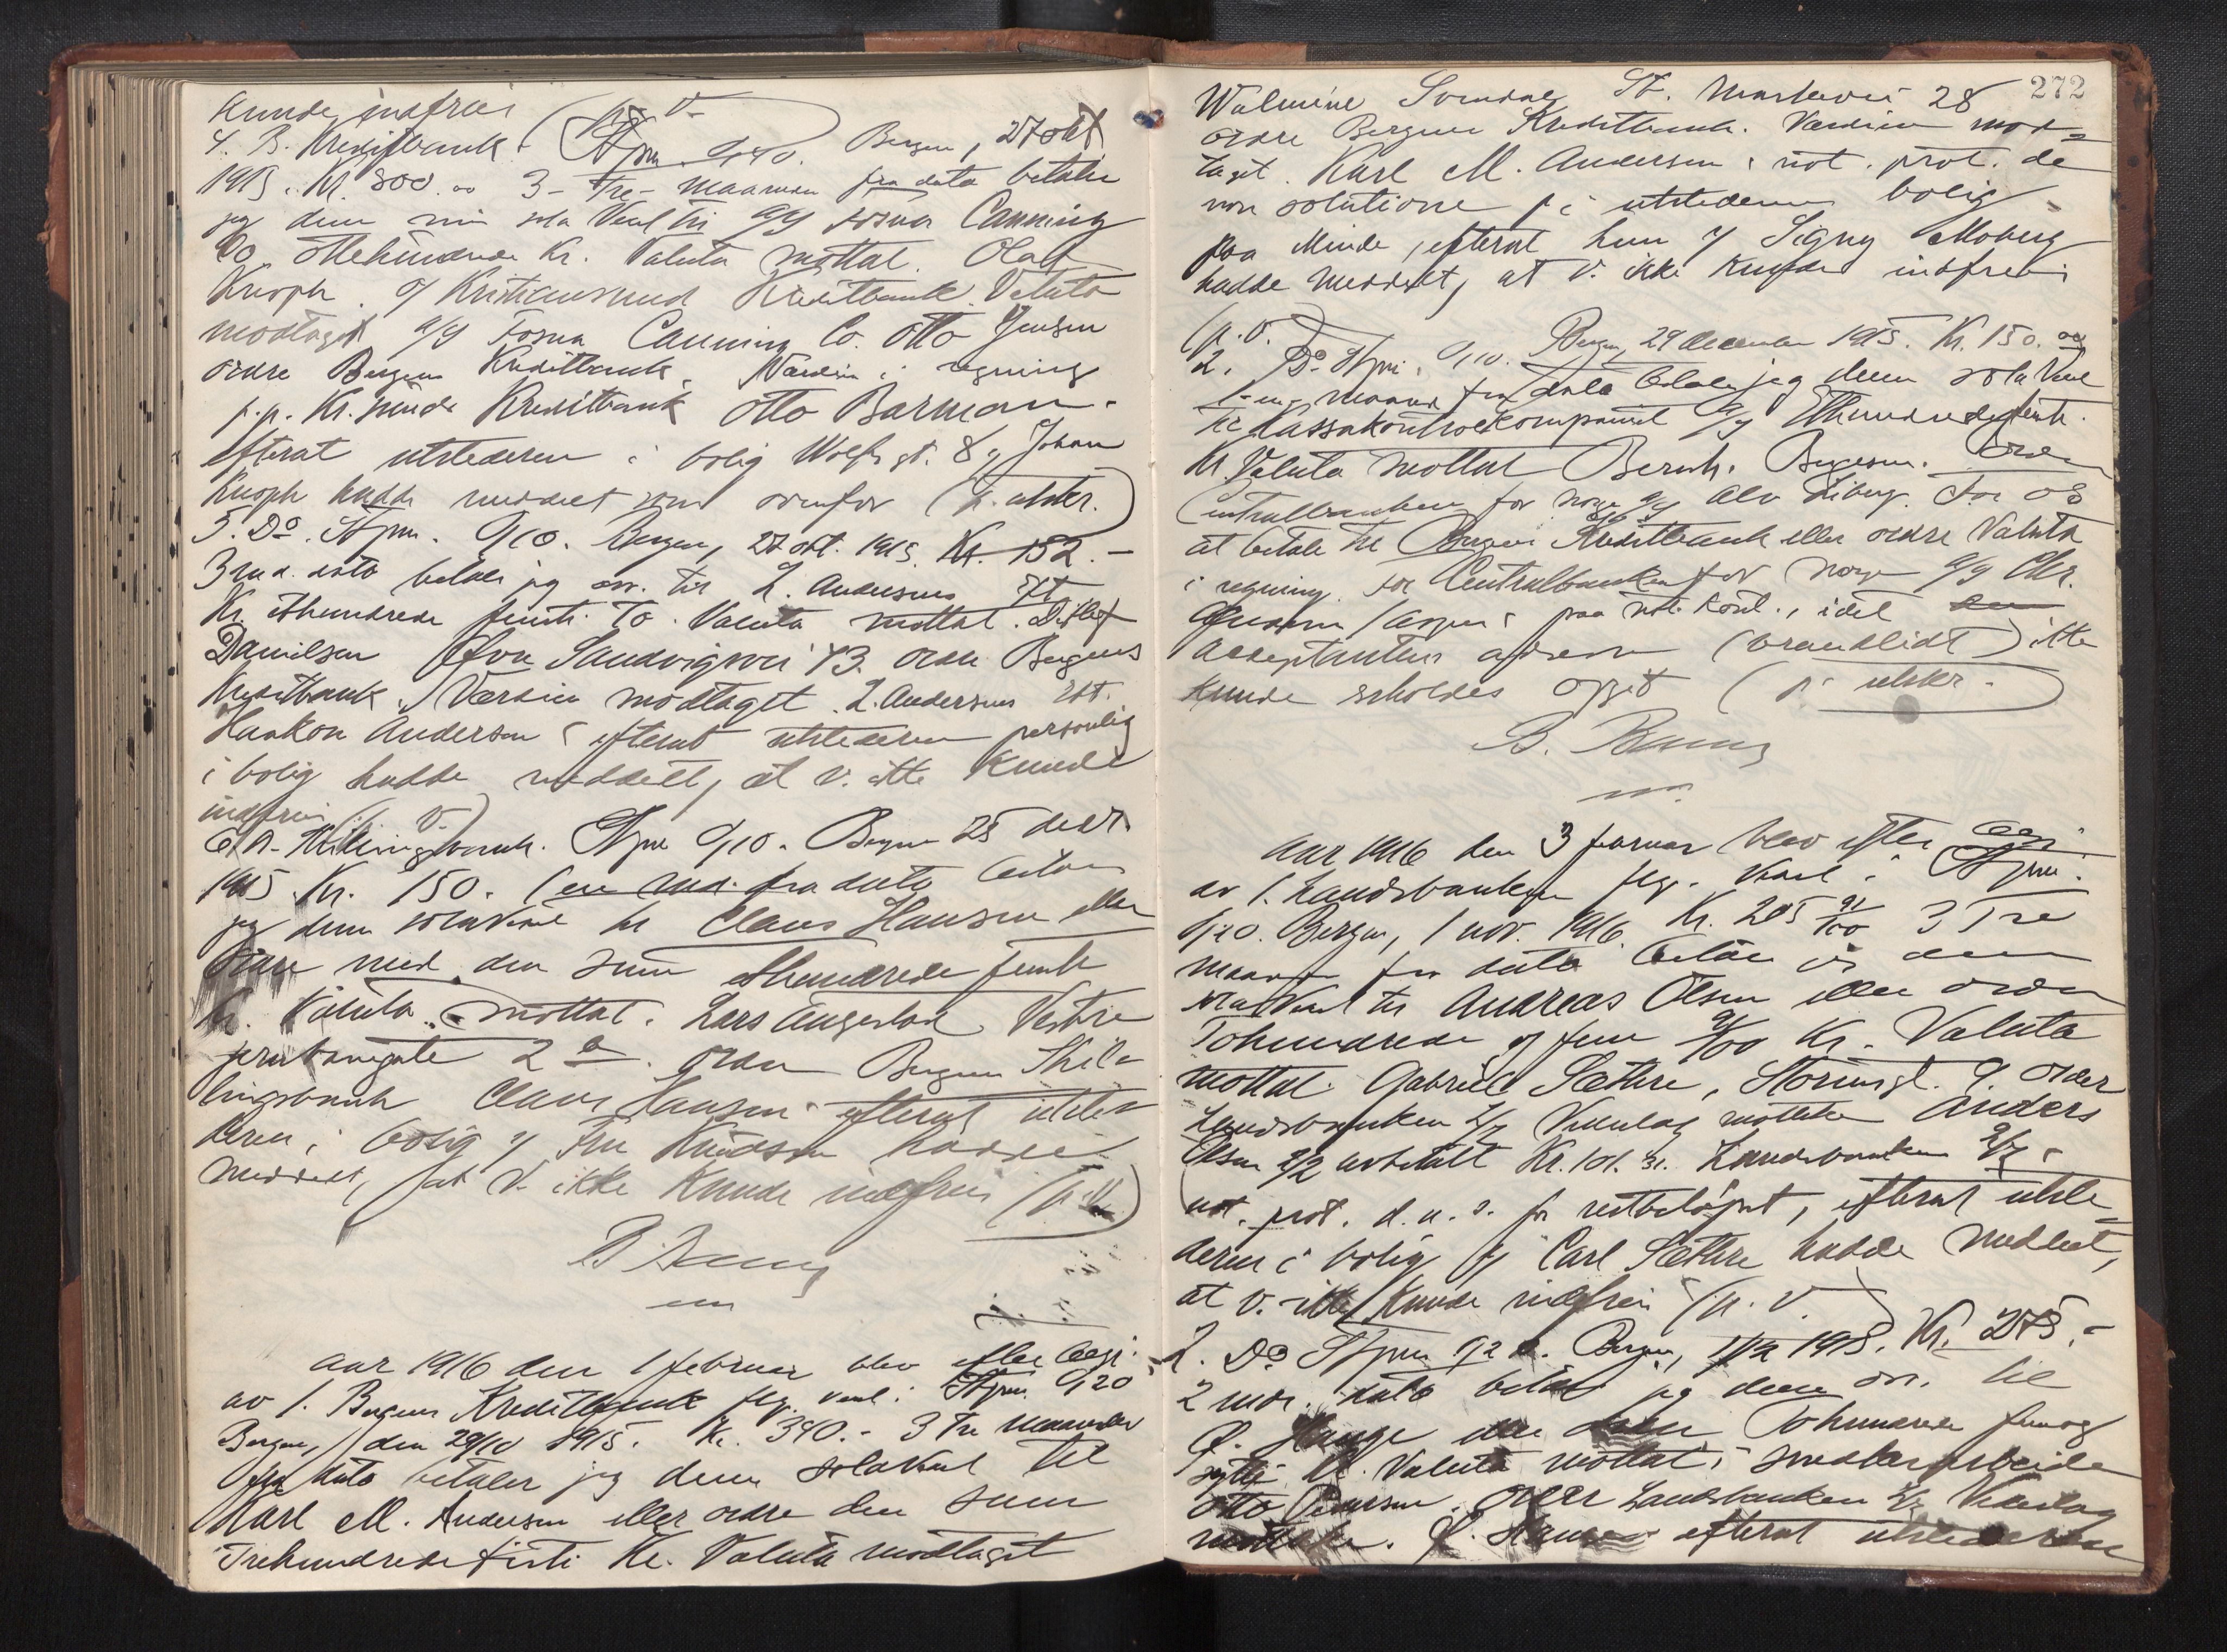 kunde indfrie (p. v.
4. B. Kreditbank. Stpm. 0/40. Bergen, 27 okt.
1915. Kr. 800.00 3 - Tre - maaneder fra dato betaler
jeg denne min sola Vexel til A/S Fosna Canning
Co. ottehundrede Kr. Valuta mottat. Olaf
Knoph. o/ Kristiansund Kreditbank. Valuta
modtaget A/S Fosna Canning Co. Otto Jensen
ordre Bergens Kreditbank. Værdien i regning
p.p. Kr.sunds Kreditbank Otto Barman.
efterat utstederen i bolig Wolfs gt. 8 v/ Johan
Knoph hadde meddelt som ovenfor (p. utskr.)
5. Do. Stpm. 0/10. Bergen, 27 okt. 1915. Kr. 152.-
3 md. dato betaler jeg osv. til L. Andersens Eft.
Kr. ethundrede femti to. Valuta mottat. Ditlef
Danielsen Øvre Sandvigsvei 43. ordre Bergens
Kreditbank. Værdien modtaget. L. Andersens Eft.
Haakon Andersen; efterat utstederen personlig
i bolig hadde meddelt, at v. ikke kunde
indfrie (p. v.)
6. B. Skillingsbank. Stpm 0/10. Bergen 28 decbr.
1915. Kr. 150. (en md. fra dato betaler
jeg denne solavexel til Claus Hansen eller
ordre med den sum ethundrede femti
Kr. Valuta mottat. Lars Vestre
2 a. ordre Bergens Skil-
lingsbank Claus Hansen. efterat utste-
deren i bolig v/ Fru Knudsen hadde
meddelt, at v. ikke kunde indfrie (p. v.)
B
Aar 1916 den 1 februar blev efter begj.
av 1. Bergens Kreditbank flg. vexl: Stpm. 0/20
Bergen, den 29/10 1915. Kr. 340.- 3 Tre maaneder
fra dato betaler jeg denne solavexel til
Karl M. Andersen eller ordre den sum
Trehundrede firti Kr. Valuta modtaget
272
St. Markevei 28
ordre Bergens Kreditbank. Værdien mod-
taget. Karl M. Andersen; not. prot. de
non solutione i utstederens bolig
paa Minde, efterat hun v/ Signy Moberg
hadde meddelt, at v. ikke kunde indfrie
(p. v.)
2. Do. Stpm. 0/10. Bergen, 29 december 1915. Kr. 150.00
1 - en - maaned fra dato betaler jeg denne sola Vexel
til Kassakontrolkompaniet A/S Ethundredefemti.
Kr. Valuta mottat Bernh. Ordre
Centralbanken for Norge A/S For os
at betale til Bergens Kreditbank eller ordre Valuta
i regning. for Centralbanken for Norge A/S Chr.
paa not. kont., idet
acceptantens adresse (brandlidt) ikke
kunde erholdes opgit (p. utskr.)
B.
Aar 1916 den 3 februar blev efter begj.
av 1. Landsbanken flg. vexl: Stpm.
0/20. Bergen, 1 nov. 1916. Kr. 205 91/100 3 Tre
maaneder fra dato betaler vi denne
sola Vexel til Andreas Olsen eller ordre
Tohundrede og fem 91/100 Kr. Valuta
mottat. Gabriel Sæthre, 9. ordre
Landsbanken A/S Vederlag mottat Anders
Olsen 2/2 avbetalt Kr. 101.31. Landsbanken A/S;
not. prot. d. n. s. for restbeløpet, efterat utste-
deren i bolig v/ Carl Sæthre hadde meddelt,
at v. ikke kunde indfrie (p. v.)
2. Do Stpm 0/20. Bergen, 1/12 1915. Kr. 275.-
2 mdr. dato betaler jeg denne osv. til
eller ordre Tohundrede femog
sytti Kr. Valuta mottat i snedkerarbeide
Otto Pedersen. ordre Landsbanken A/S Vederlag
mottat. efterat utstederen